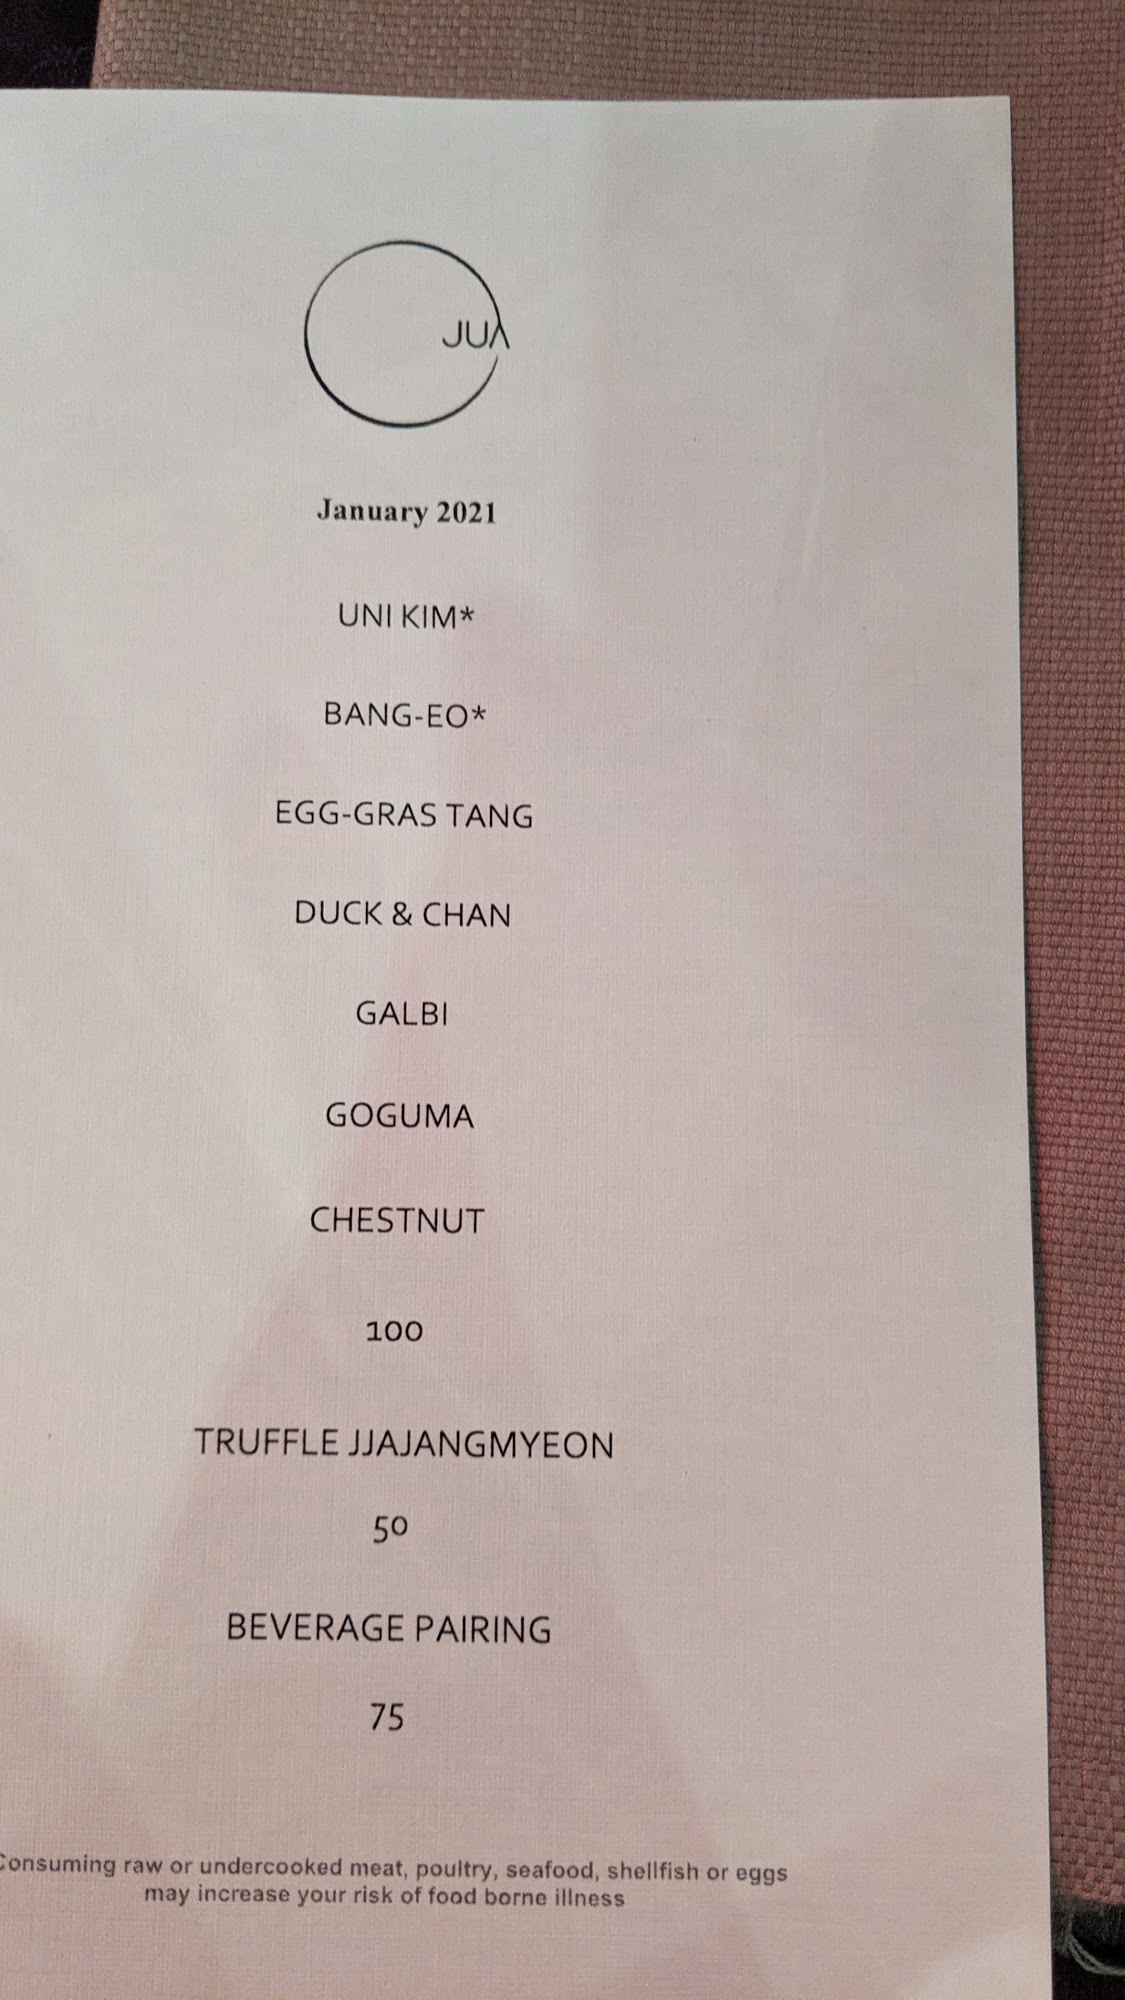 JUA
January 2021
UNI KIM*
BANG-EO*
EGG-GRAS TANG
DUCK & CHAN
GALBI
GOGUMA
CHESTNUT
100
TRUFFLE JJAJANGMYEON
50
BEVERAGE PAIRING
75
Consuming raw or undercooked meat, poultry, seafood, shellfish or eggs
may increase your risk of food borne illness